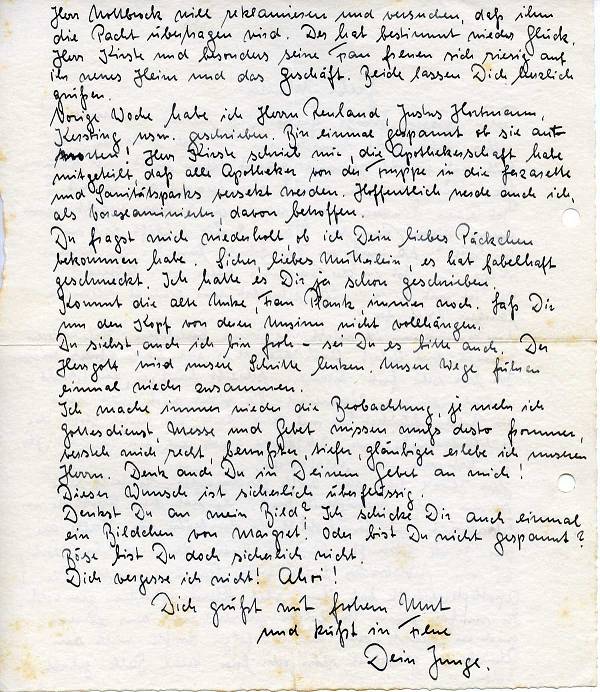 Herr Nottbusck will reklamieren und versuchen, daß ihm
die Pacht übertragen wird. Der hat bestimmt wieder Glück.
Herr Kirste und besonders seine Frau freuen sich riesig auf
ihr neues Heim und das Geschäft. Beide lassen Dich herzlich
grüßen.
Vorige Woche habe ich Herrn Renland, Justus Hortmann,
Kessting usw. geschrieben. Bin einmal gespannt ob sie ant-
worten! Herr Kirste schrieb mir, die Apothekerschaft habe
mitgeteilt, daß alle Apotheker von der Truppe in die Lazarette
und Sanitätsparks versetzt werden. Hoffentlich werde auch ich,
als Vorexaminierter, davon betroffen.
Du fragst mich wiederholt, ob ich Dein liebes Päckchen
bekommen habe. Sicher, liebes Mütterlein, es hat fabelhaft
geschmeckt. Ich hatte es Dir ja schon geschrieben.
Kommt die alte Unke, Frau Plank, immer noch. Laß Dir
nur den Kopf von deren Unsinn nicht vollhängen.
Du siehst, auch ich bin froh – sei Du es bitte auch. Der
Herrgott wird unsere Schritte lenken. Unsere Wege führen
einmal wieder zusammen.
Ich mache immer wieder die Beobachtung, je mehr ich
Gottesdienst, Messe und Gebet missen muß desto frommer,
versteh mich recht, bewußter, tiefer, gläubiger erlebe ich unseren
Herrn. Denk auch Du in Deinem Gebet an mich!
Dieser Wunsch ist sicherlich überflüssig.
Denkst Du an mein Bild? Ich schicke Dir auch einmal
ein Bildchen von Margret! Oder bist Du nicht gespannt?
Böse bist Du doch sicherlich nicht.
Dich vergesse ich nicht! Ahoi!
Dich grüßt mit frohem Mut
und küßt in Treue
Dein Junge.